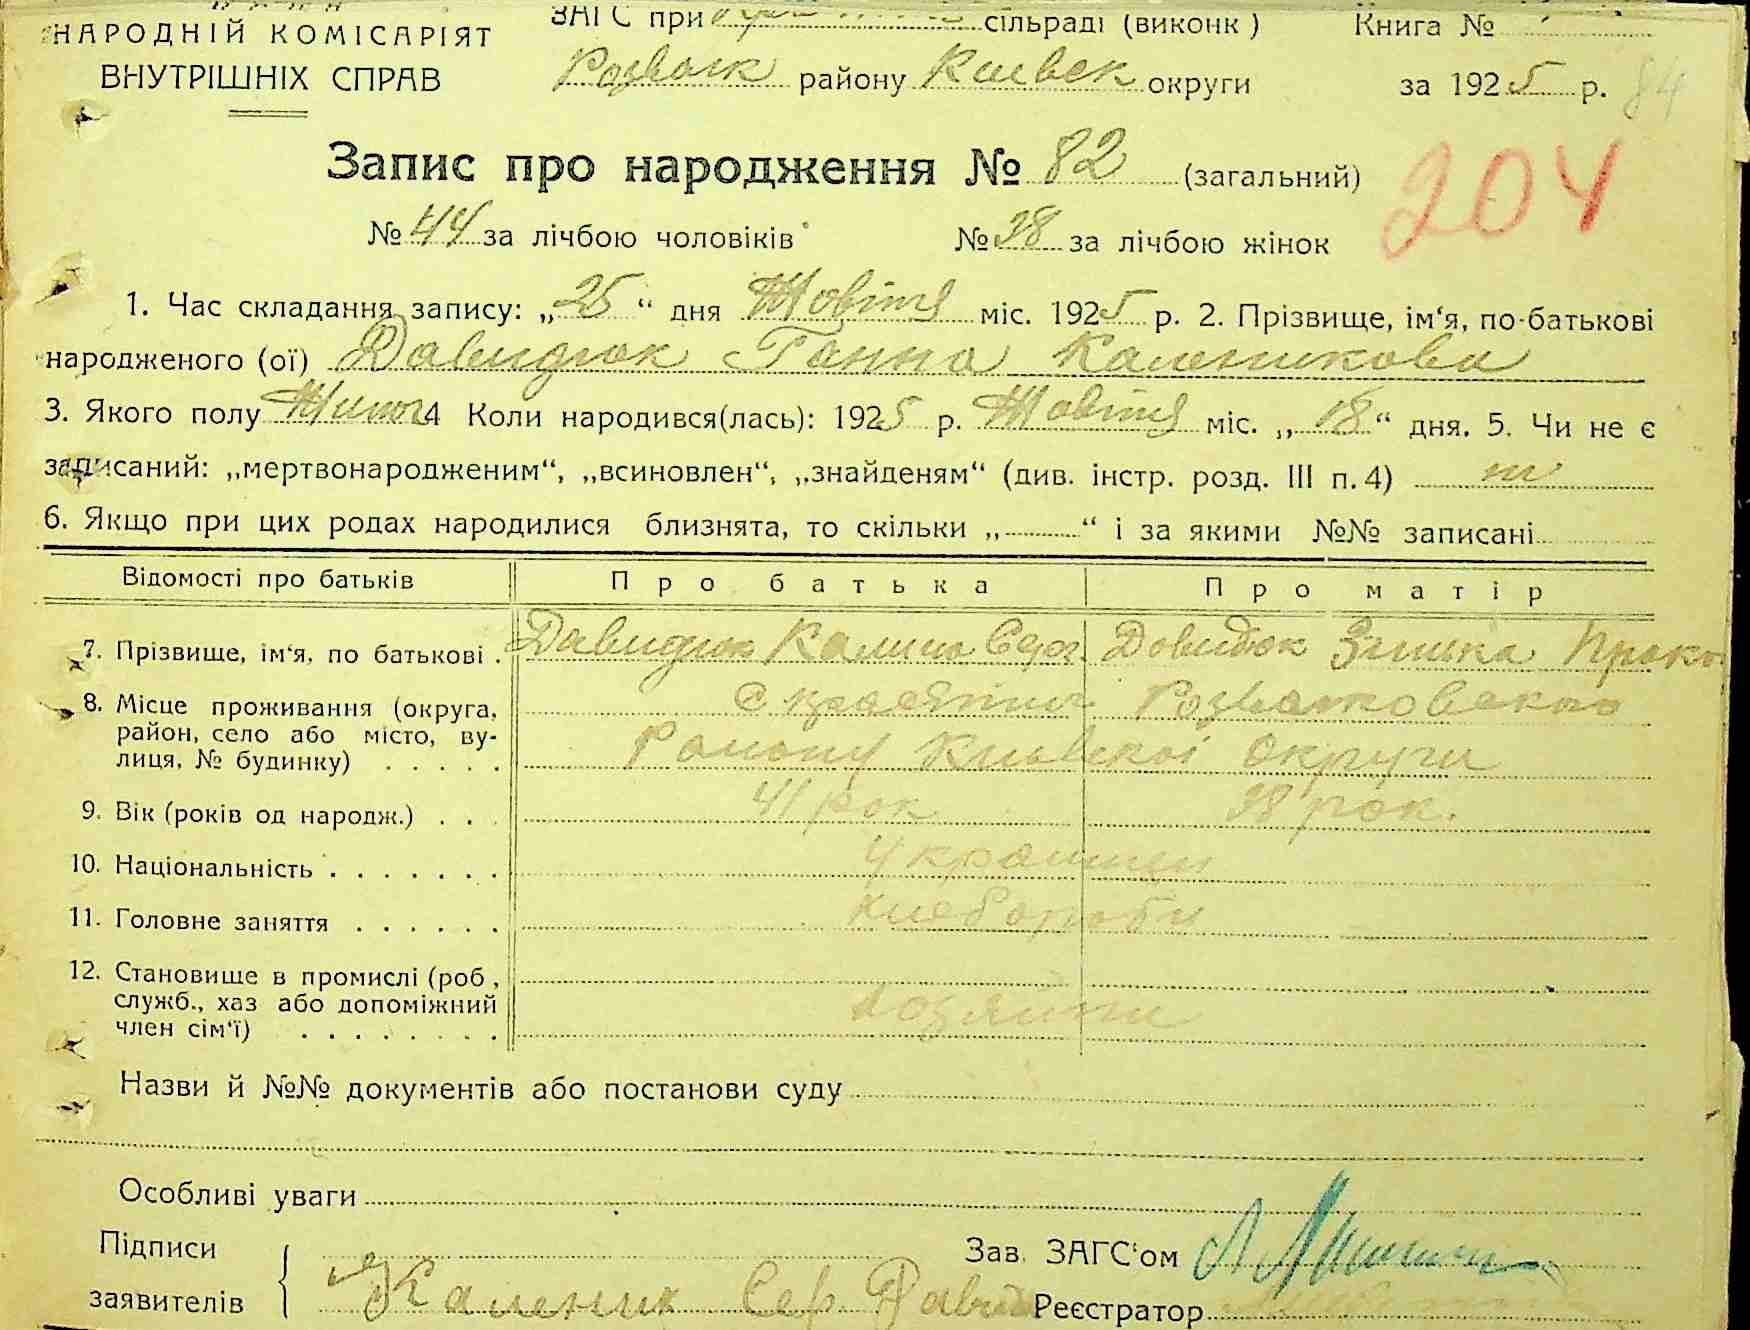 НАРОДНІЙ КОМІСАРІЯТ
ВНУТРІШНІХ СПРАВ
ЗАГС при сільраді (виконк)
Книга №
Розваж району Київськ округи
за 1925 р. 84
Запис про народження № 82 (загальний)
204
№ 44 за лічбою чоловіків № 38 за лічбою жінок
1. Час складання запису: „25“ дня Жовтня міс. 1925 р. 2. Прізвище, ім‘я, по-батькові
народженого (ої) Давидюк Ганна Каленикова
3. Якого полу Жіноч 4 Коли народився(лась): 1925 р. Жовтня міс. „18“ дня. 5. Чи не є
записаний: „мертвонародженим“, „всиновлен“, „знайденям“ (див. інстр. розд. III п. 4) ні
6. Якщо при цих родах народилися близнята, то скільки „ “ і за якими №№ записані
Відомості про батьків Про батька Про матір
7. Прізвище, ім‘я, по батькові . Давидюк Давидюк Зінька Проко
8. Місце проживання (округа, район, село або місто, вулиця, № будинку) . . . . .
с Розважовського
Району Київскої Округи
9. Вік (років од народж.) . . . 41 рок 38 рок.
10. Національність . . . . . . . Українци
11. Головне заняття . . . . . . хлебороби
12. Становище в промислі (роб, служб., хаз або допоміжний член сім‘ї) . . . . . . . .
хозяини
Назви й №№ документів або постанови суду
Особливі уваги
Підписи
заявителів
Зав. ЗАГС‘ом
Каленик Сер Давид
Реєстратор